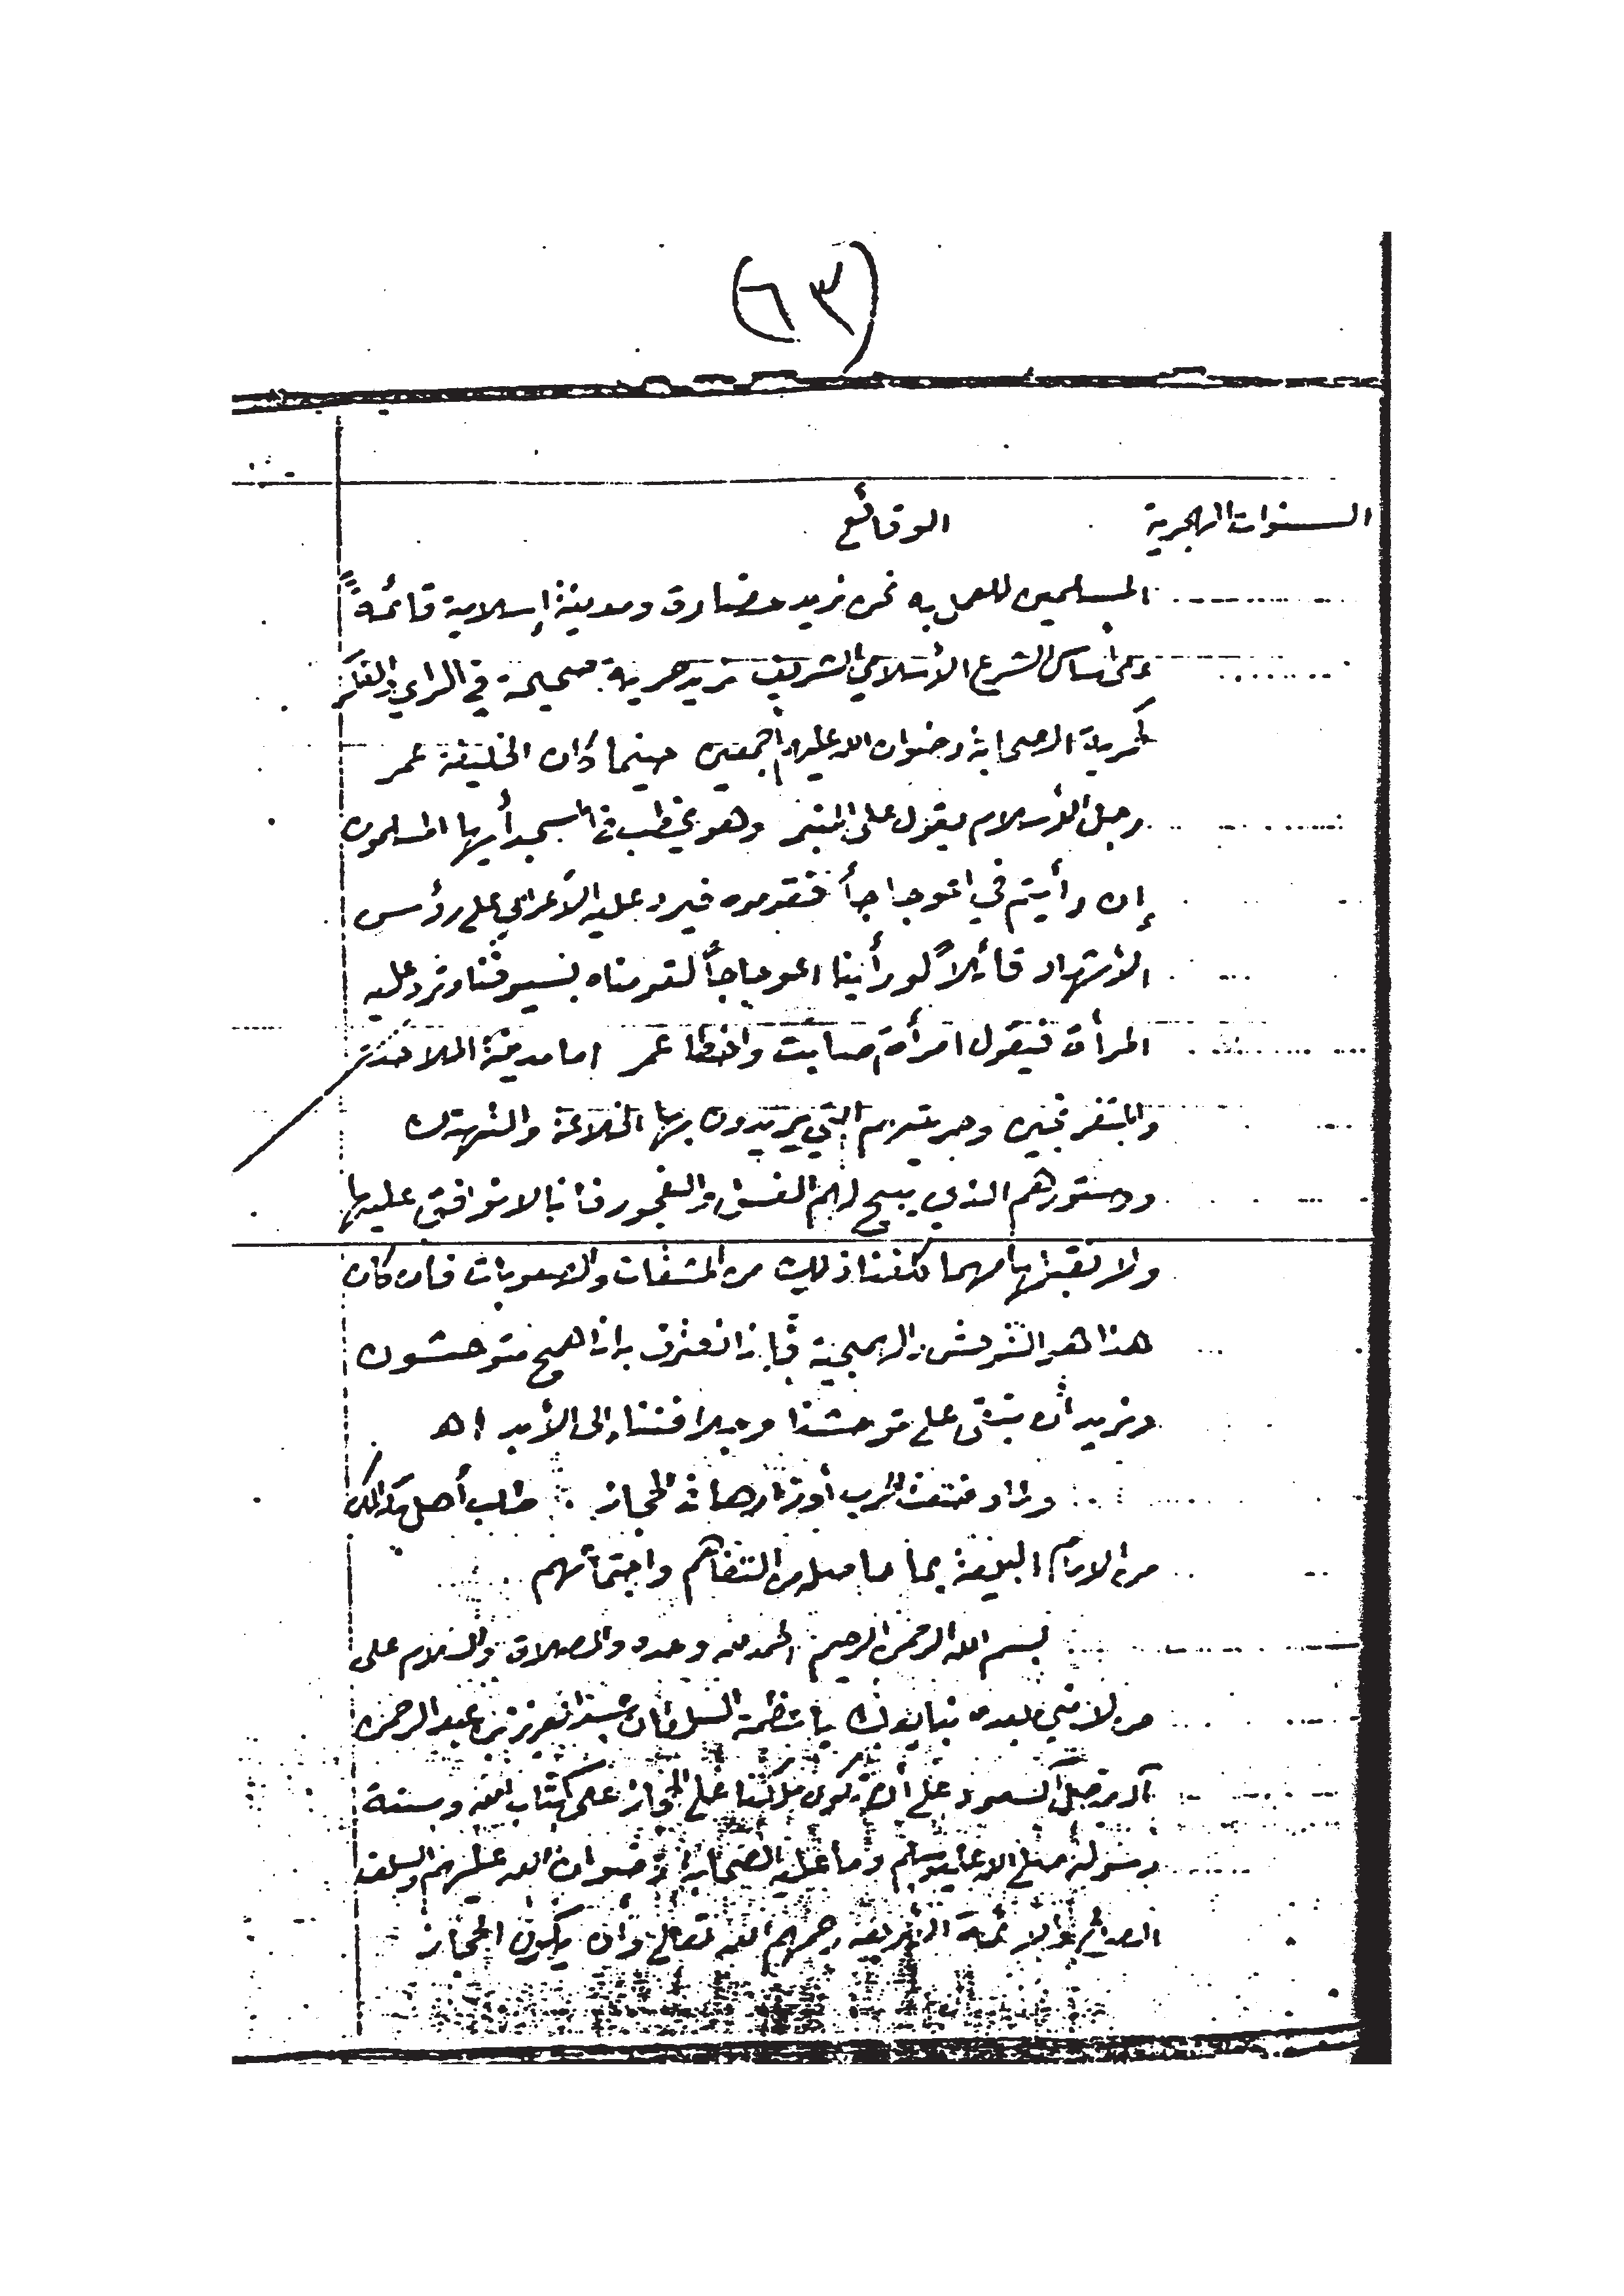 (٦٣)
السنوات الهجرية الوقائع
المسلمين للعمل به نحن نريد حضارة ومدنية إسلامية قائمةً
على أساس الشرع الأسلامي الشريف نريد حرية صحيحة في الراي والفكر
كحرية الصحابة رضوان الله عليهم أجمعين حينما كان الخليفة عمر
رجل الأسلام يقول على المنبر وهو يخطب في المسجد أيها المسلمون
إن رأيتم في اعوجاجاً فقوموه فيرد عليه الأعرابي على رؤس
الأشهاد قائلاً لو رأينا اعوجاجاً لقومناه بسيوفنا وترد عليه
المرأة فيقول امرأة صابت واخطا عمر اما مدنية الملاحدة
والمتفرنجين وحريتهم التي يريدون بها الخلاعة والتهتك
ودستورهم الذي يبيح لهم الفسق والفجور فاننا لا نوافق عليها
ولا نقبلها مهما كلفنا ذلك من المشقات والصعوبات فان كان
هذا هو التوحش والهمجية فإننا نعترف باننا همج متوحشون
ونريد أن نبقى على توحشنا وجلافتنا إلى الأبد اهـ
ولما وضعت الحرب أوزارها في الحجاز طلب أهل مكة
من الامام البيعة بما حاصله من التفاهم واجتمأنهم
بسم الله الرحمن الرحيم الحمد لله وحده والصلاة والسلام على
من لا نبي بعده نبايعك يا عظمة السلطان عبد العزيز بن عبد الرحمن
آل فيصل السعود على أن تكون ملكنا على الحجاز على كتاب الله وسنة
رسوله صلى الله عليه وسلم وما عليه الصحابة رضوان الله عليهم والسلف
الصالح والائمة الأربعة رحمهم الله تعالى وأن يكون الحجاز